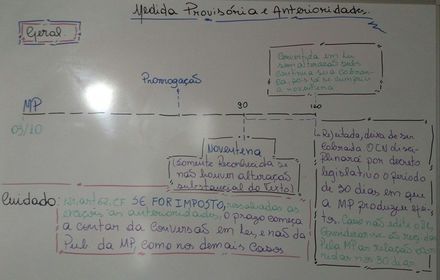 Medida Provisória e Anterioridades.
Geral
Convertida em Lei
sem alteração subs
continua sua cobran
ça, pois já se cumpriu
a noventena
Prorrogação
MP
03/10
90
160
Noventena
(somente reconhecida se
não houver alteração
substancial do texto)
Rejeitada, deixa de ser
cobrada. O CN disci-
plinará por decreto
legislativo o período
de 90 dias em que
a MP produziu efei-
tos. Caso não edite o DL,
pela MP as relações
nos 90 dias
Cuidado: art. 62, CF SE FOR IMPOSTO, ressalvadas as
exceções às anterioridades, O prazo começa
a contar da Conversão em Lei, e não da
Pub da MP, como nos demais casos